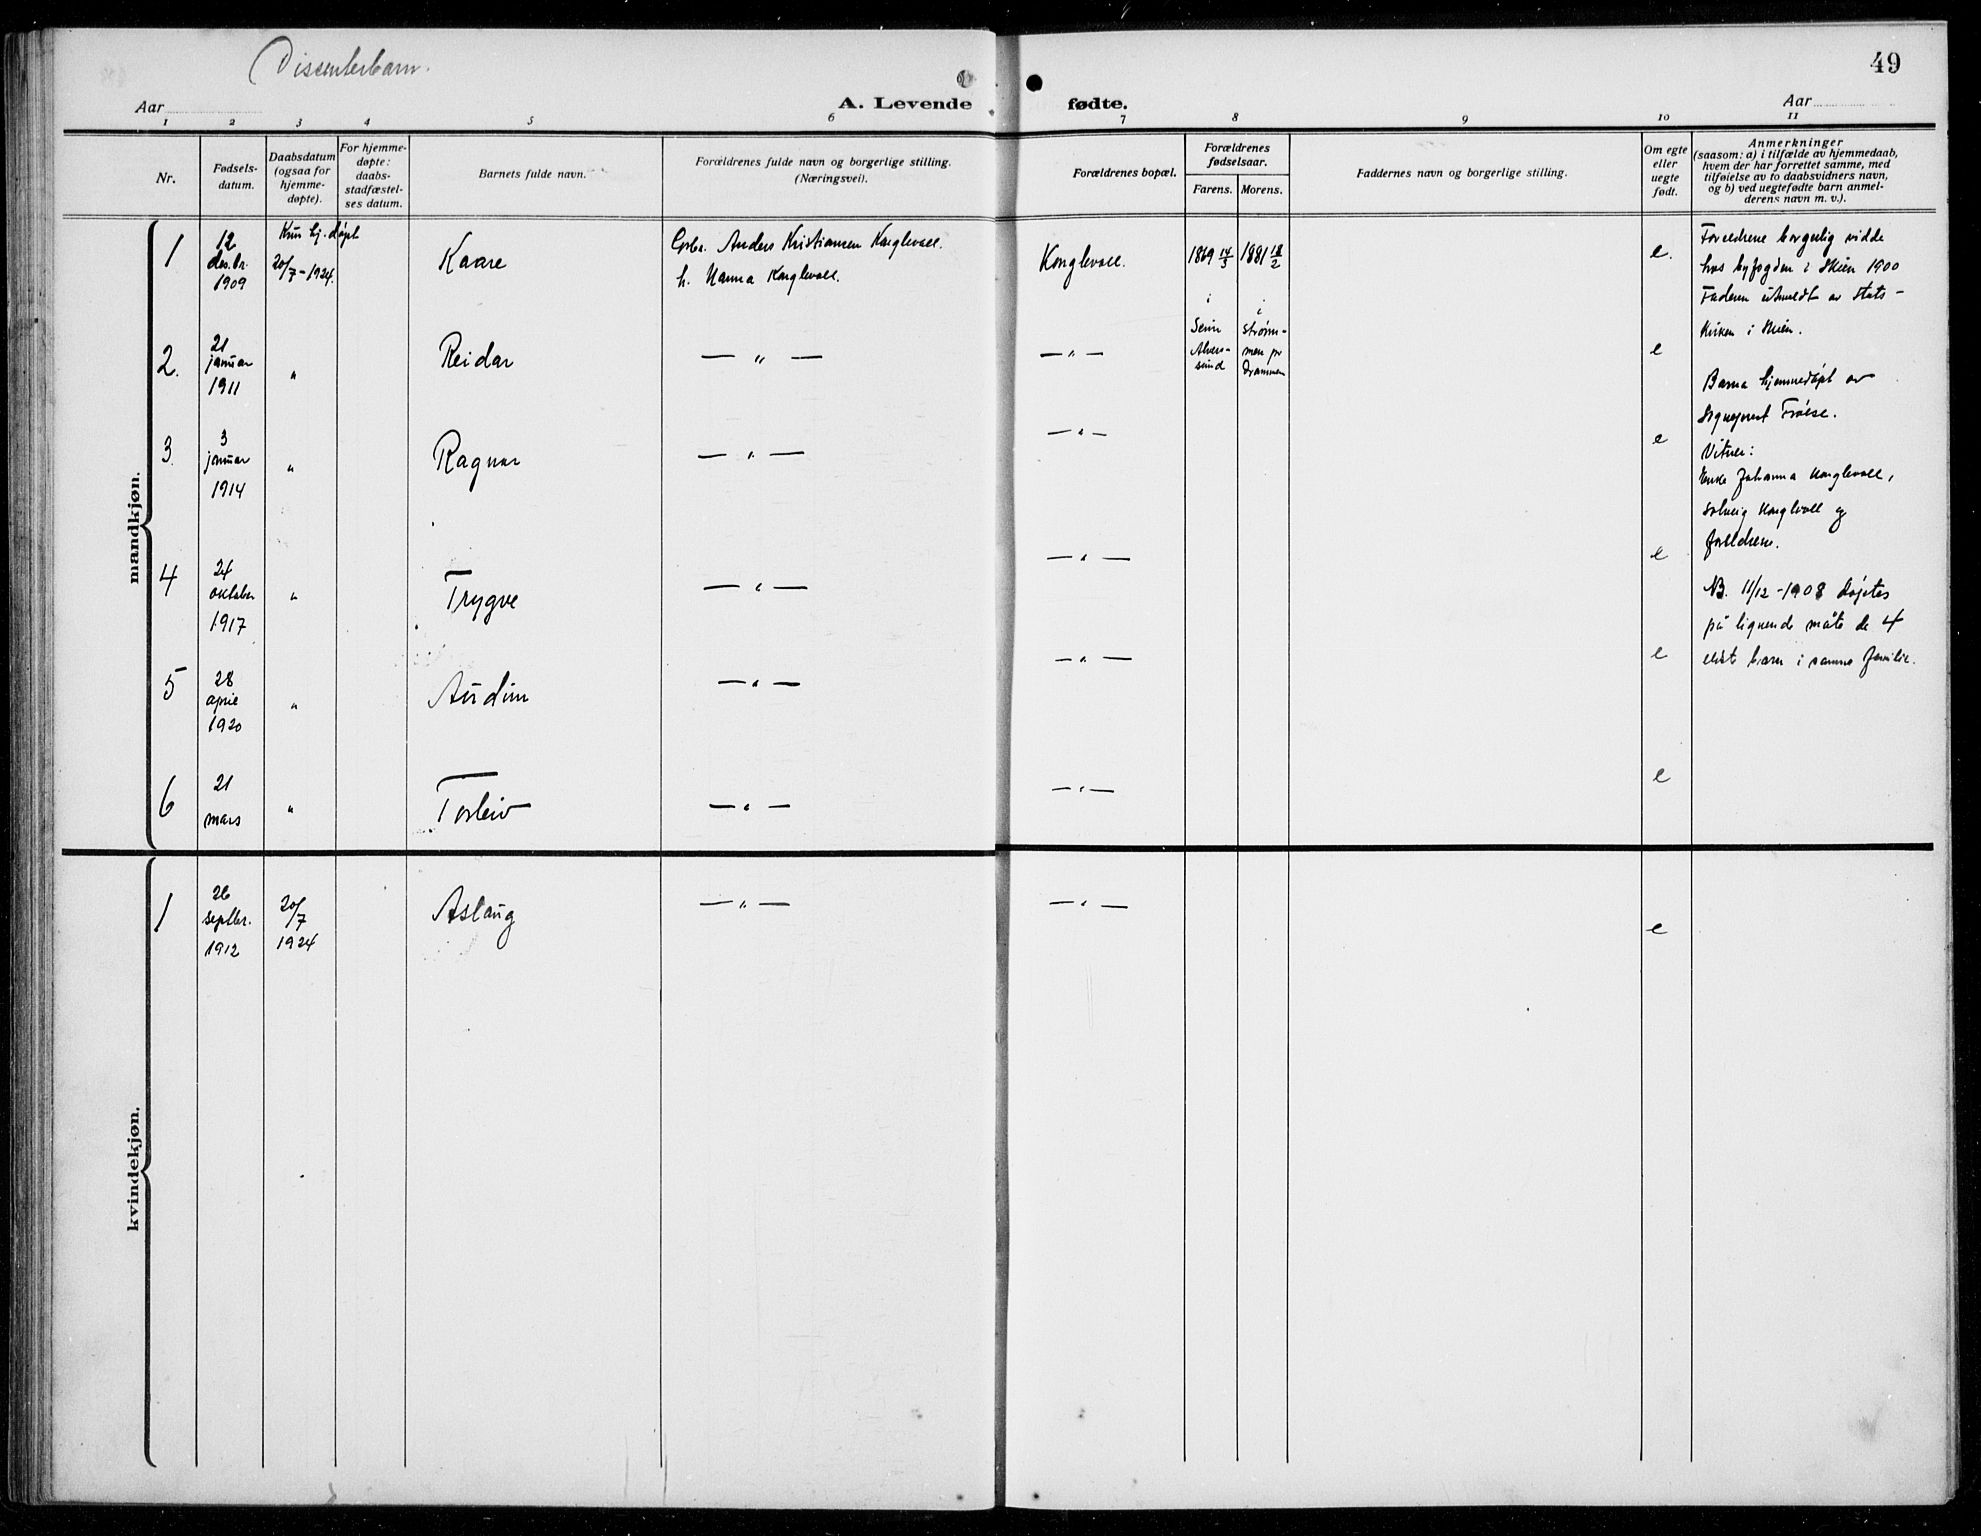 Dissenterbarn.
49
Aar
A. Levende fødte.
Aar
1 2 3 4 5 6 7 8 9 10 11
Nr.
Fødsels-
datum.
Daabsdatum
(ogsaa for
hjemme-
døpte).
For hjemme-
døpte:
daabs-
stadfæstel-
ses datum.
Barnets fulde navn.
Forældrenes fulde navn og borgerlige stilling.
(Næringsvei).
Forældrenes bopæl.
Forældrenes
fødselsaar.
Farens. Morens.
Faddernes navn og borgerlige stilling.
Om egte
eller
uegte
født.
Anmerkninger
(saasom: a) i tilfælde av hjemmedaab,
hvem der har forrettet samme, med
tilføielse av to daabsvidners navn,
og b) ved uegtefødte barn anmel-
derens navn m. v.).
mandkjøn.
Kun hj. døpt
1
12
des.br.
1909
20/7 - 1924.
Kaare
Gbr. Anders Kristiansen Konglevoll.
h. Hanna Konglevoll.
Konglevoll.
1869 14/3
1881 18/2
e.
i
Seim
Alver-
sund
i
Strøm-
men pr
Drammen
Foreldrene borgerlig vidde
hos byfogden i Skien 1900
Faderen utmeldt av Stats-
kirken i Skien.
2.
21
januar
1911
"
Reidar
— " —
— " —
e
Barna hjemmedøpt av
Sogneprest Frøise.
3.
3
januar
1914
"
Ragnar
— " —
— " —
e
Vitner:
Enke Johanna Konglevoll,
Solveig Konglevoll og
foreldrene.
4
24
oktober
1917
"
Trygve
— " —
— " —
e
NB. 11/12 - 1908 døptes
på lignende måte de 4
eldst barn i samme familie.
5
28
april
1920
"
Audun
— " —
— " —
e
6
21
mars
"
Torleiv
— " —
— " —
e
kvindekjøn.
1
26
septbr.
1912
20/7
1924
Aslaug
— " —
— " —
e